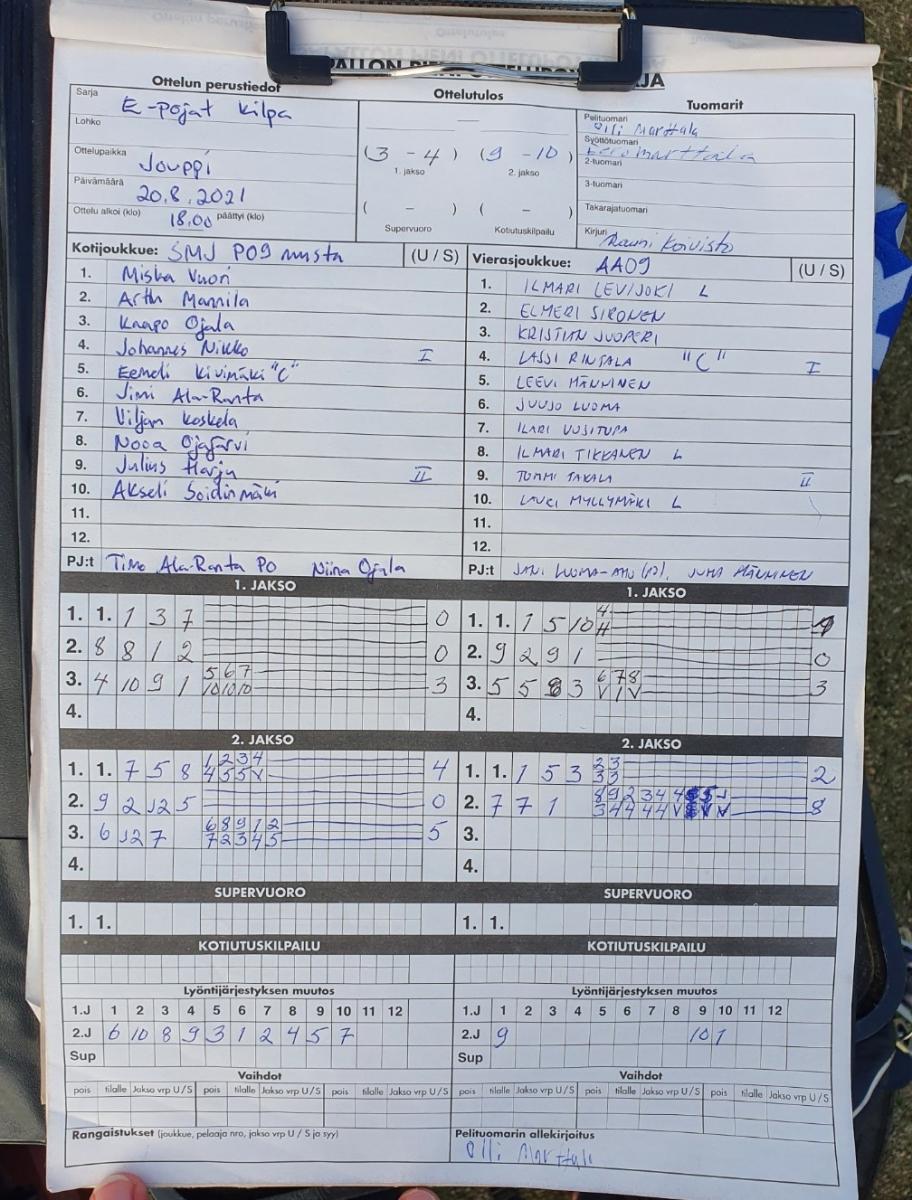 Ottelun perustiedot
Sarja E-pojat Kilpa
Lohko
Ottelupaikka Jouppi
Päivämäärä 20.8.2021
Ottelu alkoi (klo) 18.00 päättyi (klo)
Ottelutulos
(3 - 4) (9 - 10)
1. jakso 2. jakso
( - ) ( - )
Supervuoro Kotiutuskilpailu
Tuomarit
Pelituomari Olli Marttala
Syöttötuomari
2-tuomari
3-tuomari
Takarajatuomari
Kirjuri Rauni Koivisto
Kotijoukkue: SMJ P09 musta (U / S)
1. Miska Vuori
2. Arttu Mannila
3. Kaapo Ojala
4. Johannes Nikko I
5. Eemeli Kivimäki "C"
6. Jimi Ala-Ranta
7. Viljam Koskela
8. Nooa Ojajärvi
9. Julius Harju II
10. Akseli Soidinmäki
11.
12.
PJ:t Timo Ala-Ranta PO Niina Ojala
Vierasjoukkue: AA09 (U / S)
1. ILMARI LEVIJOKI L
2. ELMERI SIRONEN
3. KRISTIAN JUOPERI
4. LASSI RINTALA "C" I
5. LEEVI MÄNNINEN
6. JUUJO LUOMA
7. ILARI UUSITUPA
8. ILMARI TIKKANEN L
9. TOMMI TAKALA II
10. LAURI MYLLYMÄKI L
11.
12.
PJ:t JANI LUOMA-AHO (P), JUHA MÄNNINEN
1. JAKSO
1. 1. 1 3 7 0
2. 8 8 1 2 0
5 6 7
3. 4 10 9 1 10 10 10 3
4.
1. JAKSO
4
1. 1. 1 5 10 H
2. 9 2 9 1 0
6 7 8
3. 5 5 8 3 V 1 V 3
4.
2. JAKSO
1 2 3 4
1. 1. 7 5 8 4 5 5 V 4
2. 9 2 J2 5 0
6 8 9 1 2
3. 6 J2 7 7 2 3 4 5 5
4.
2. JAKSO
2 3
1. 1. 1 5 3 3 3 2
8 9 2 3 4 4
2. 7 7 1 3 4 4 4 4 V V V 8
3.
4.
SUPERVUORO
1. 1.
SUPERVUORO
1. 1.
KOTIUTUSKILPAILU
KOTIUTUSKILPAILU
Lyöntijärjestyksen muutos
1.J 1 2 3 4 5 6 7 8 9 10 11 12
2.J 6 10 8 9 3 1 2 4 5 7
Sup
Lyöntijärjestyksen muutos
1.J 1 2 3 4 5 6 7 8 9 10 11 12
2.J 9 10 1
Sup
Vaihdot
pois tilalle Jakso vrp U / S pois tilalle Jakso vrp U / S pois tilalle Jakso vrp U / S
Vaihdot
pois tilalle Jakso vrp U / S pois tilalle Jakso vrp U / S pois tilalle Jakso vrp U / S
Rangaistukset (joukkue, pelaaja nro, jakso vrp U / S ja syy)
Pelituomarin allekirjoitus
Olli Marttala